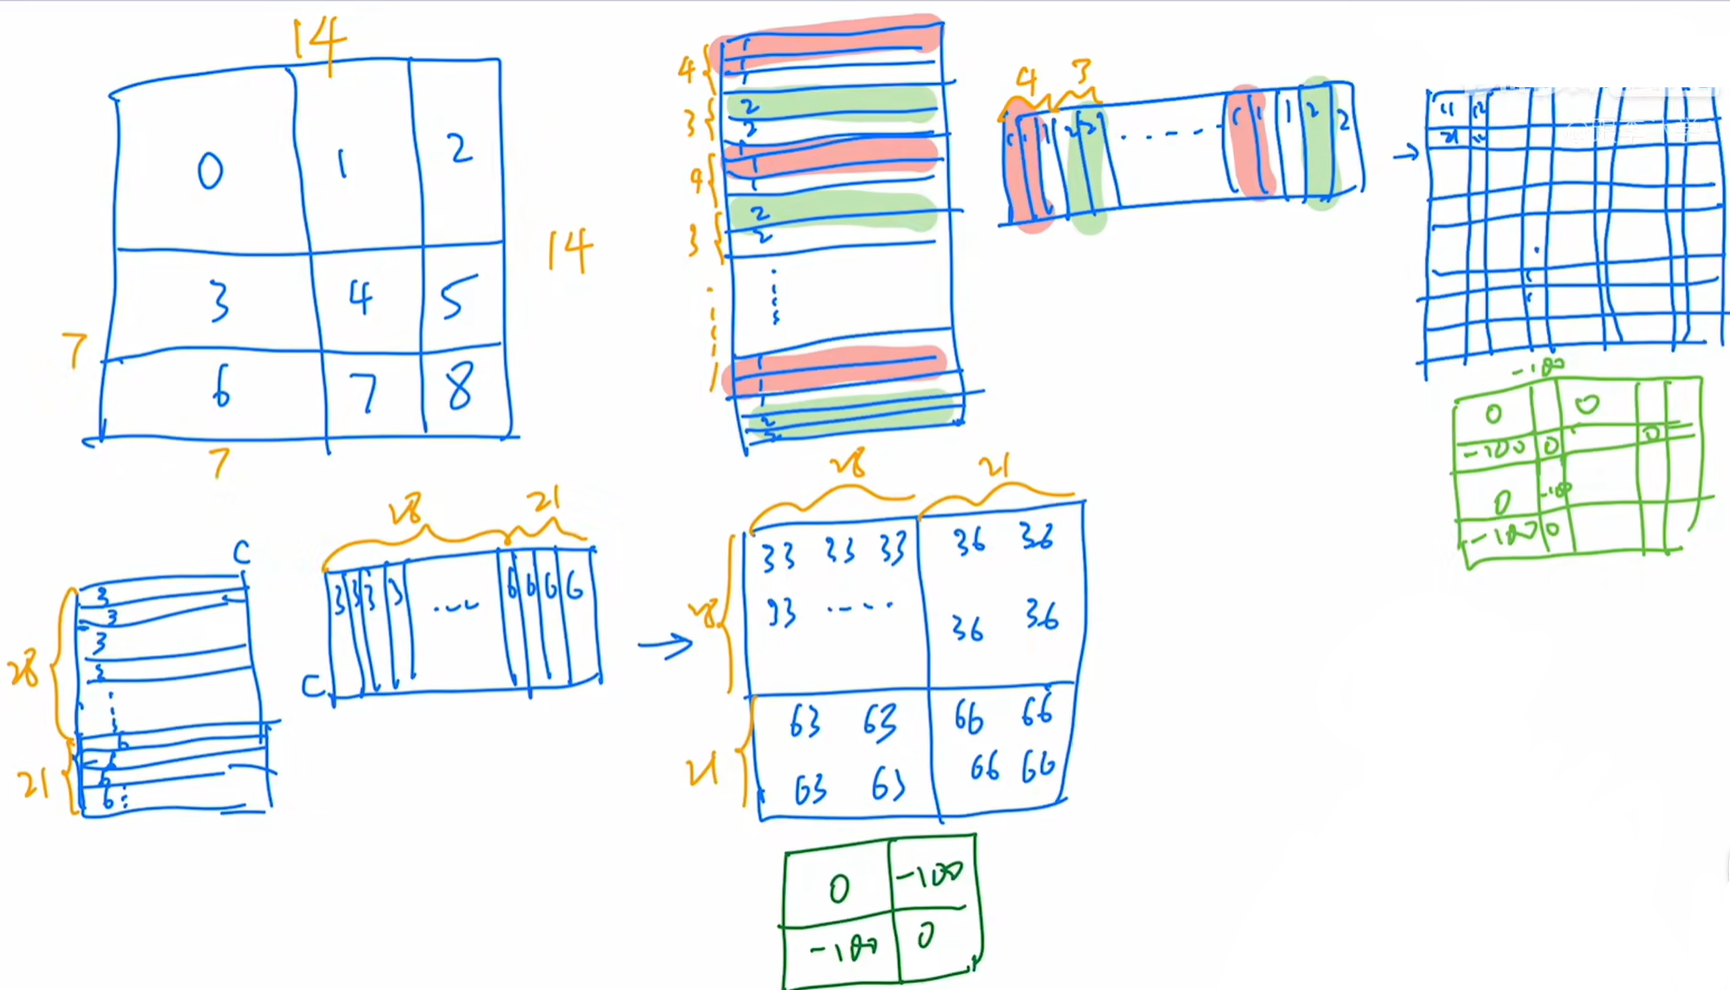 14
0 1 2
3 4 5
6 7 8
7
14
7
4
3
4
3
1
1
1
2
2
1
1
1
2
2
1
1
2
2
4 3
1 1 1 2 2 ...... 1 1 1 2 2
→
11 12
21
-100
0 0
-100 0 0
0 -100
-100 0
C
28
21
3
3
3
3
6
6
6
6
28 21
3 3 3 3 ... 6 6 6 6
C
→
28 21
28
21
33 33 33 36 36
33 ..... 36 36
63 63 66 66
63 63 66 66
0 -100
-100 0